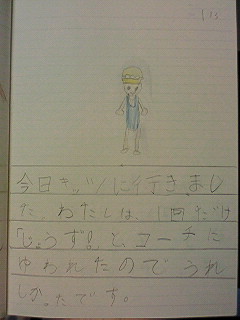 113
今日キッツに行きまし
た。わたしは、1回だけ
「じょうず!」と、コーチに
ゆわれたのでうれ
しかったです。